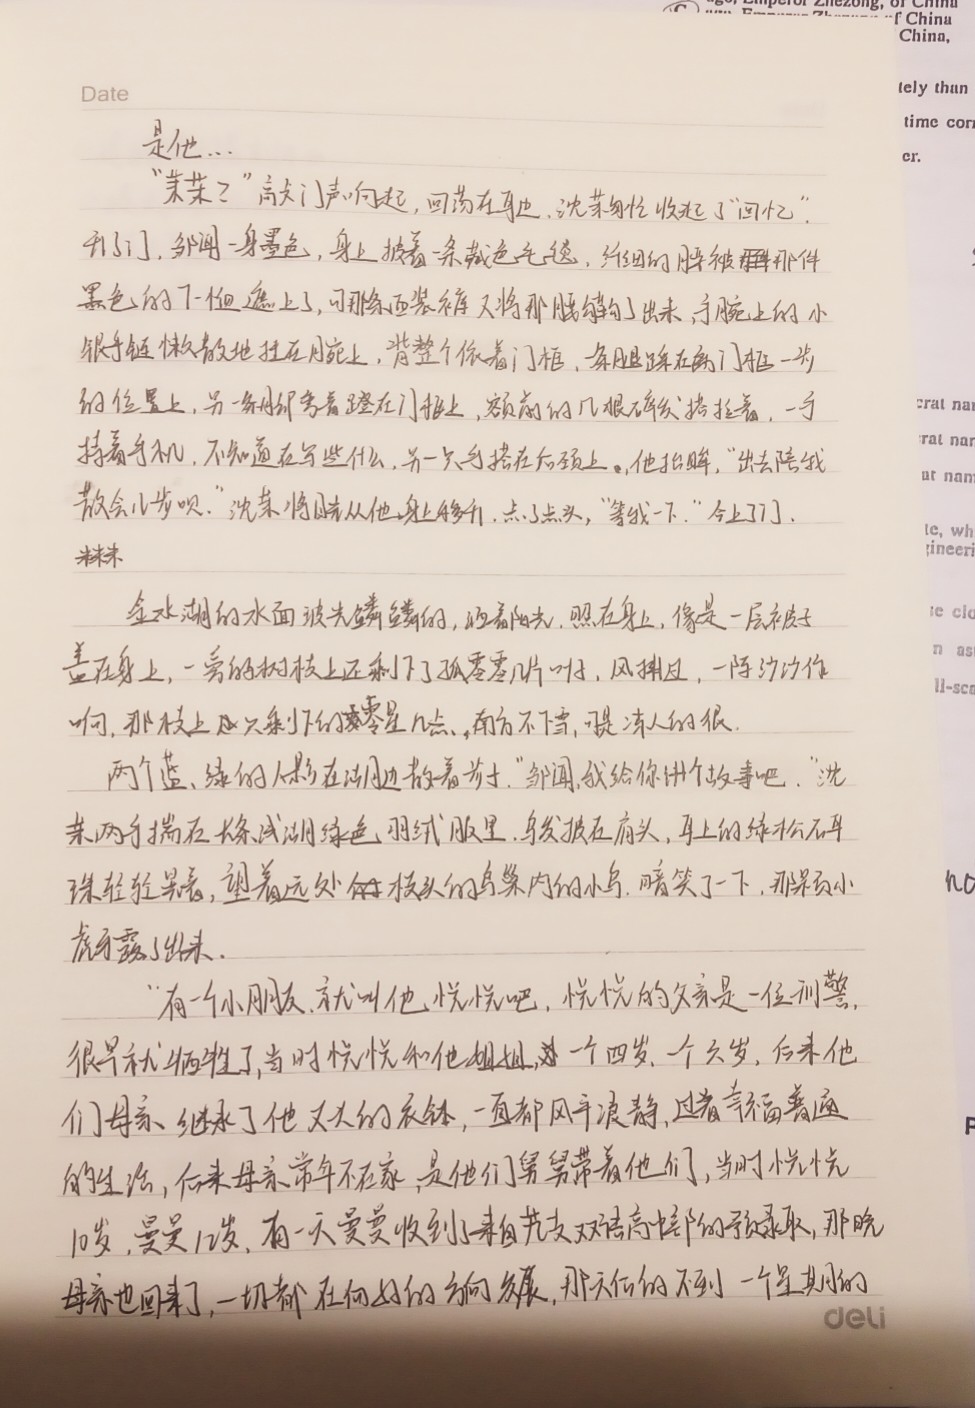 ago, Emperor Zhezong, of China
of China
China,
tely than
time corr
er.
Date
是他…
“茉茉？”高大门声响起，回荡在耳边，沈茉匆忙收起了“回忆”.
开了门，邹闻一身墨色，身上披着一条藏色毛毯，纤细的腰被那件
黑色的T恤遮上了，可那条西装裤又将那腰勾了出来，手腕上的小
银手链懒散地挂在腕上，背整个依着门框，一条腿踩在离门框一步
的位置上，另一条脚弯着蹬在门框上，额前的几根碎发搭拉着，一手
持着手机，不知道在写些什么，另一只手搭在后颈上。他抬眸，“出去陪我
散会儿步呗.”沈茉将目光从他身上移开，点了点头，“等我一下.”合上了门.
米米米
金水湖的水面波光鳞鳞的，迎着阳光，照在身上，像是一层被子
盖在身上，一旁的树枝上还剩下了孤零零几片叶子，风拂过，一阵沙沙作
响，那枝上只剩下的零星几点，南方不下雪，可是冻人的很.
两个蓝、绿的人影在湖边散着步.“邹闻，我给你讲个故事吧.”沈
茉两手揣在长条浅湖绿色羽绒服里，乌发披在肩头，耳上的绿松石耳
珠轻轻晃着，望着远处枝头的鸟巢内的小鸟，暗笑了一下，那两颗小
虎牙露了出来.
“有一个小朋友，就叫他悦悦吧，悦悦的父亲是一位刑警，
很早就牺牲了，当时悦悦和他姐姐，一个四岁，一个六岁，后来他
们母亲继承了他丈夫的衣钵，一直都风平浪静，过着幸福普通
的生活，后来母亲常年不在家，是他们舅舅带着他们，当时悦悦
10岁，曼曼12岁，有一天曼曼收到了来自双语高中部的预录取，那晚
母亲也回来了，一切都在向好的方向发展，那天后的不到一个星期的
deli
crat nam
rat nar
at nam
te, wh
gineeri
se clo
n ast
ll-sca
no
P